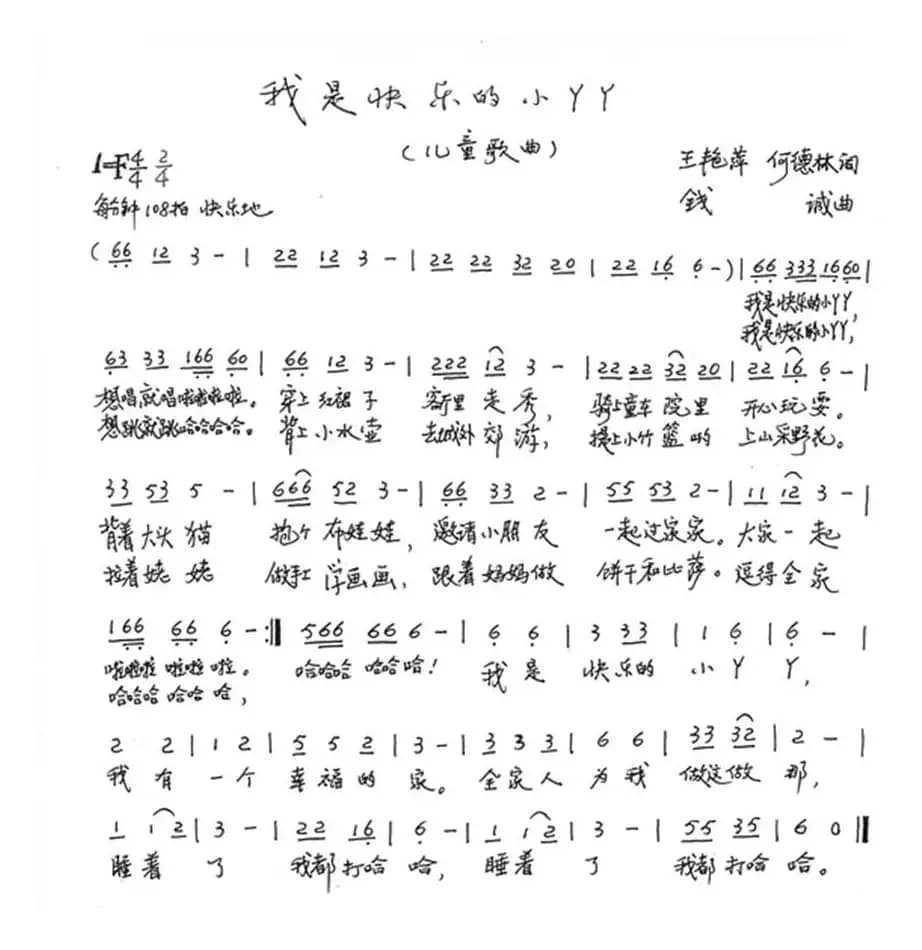 我是快乐的小丫丫
(儿童歌曲)
1=F 4/4 2/4
王艳萍 何德林词
每分钟108拍 快乐地
錢 诚曲
( 66 12 3 - | 22 12 3 - | 22 22 32 20 | 22 16 6 - ) | 66 333 16 60 |
我是快乐的小丫丫,
我是快乐的小丫丫,
63 33 166 60 | 66 12 3 - | 222 12 3 - | 22 22 32 20 | 22 16 6 - |
想唱就唱啦啦啦啦。 穿上红裙子 客厅里走秀, 骑上童车院里 开心玩耍。
想跳就跳哈哈哈哈。 背上小水壶 去城外郊游, 提上小竹篮哟 上山采野花。
33 53 5 - | 666 52 3 - | 66 33 2 - | 55 53 2 - | 11 12 3 - |
背着大头猫 抱个布娃娃, 邀请小朋友 一起过家家。 大家一起
拉着姥姥 做手工学画画, 跟着妈妈做 饼干和比萨。 逗得全家
166 66 6 - :‖ 566 66 6 - | 6 6 | 3 33 | 1 6 | 6 - |
啦啦啦 啦啦 啦。 哈哈哈 哈哈哈! 我是 快乐的 小丫 丫,
哈哈哈 哈哈 哈,
2 2 | 1 2 | 5 5 2 | 3 - | 3 3 3 | 6 6 | 33 32 | 2 - |
我有 一个 幸福的 家。 全家人 为我 做这做 那,
1 1 2 | 3 - | 22 16 | 6 - | 1 1 2 | 3 - | 55 35 | 6 0 ‖
睡着 了 我都打哈 哈, 睡着 了 我都打哈 哈。